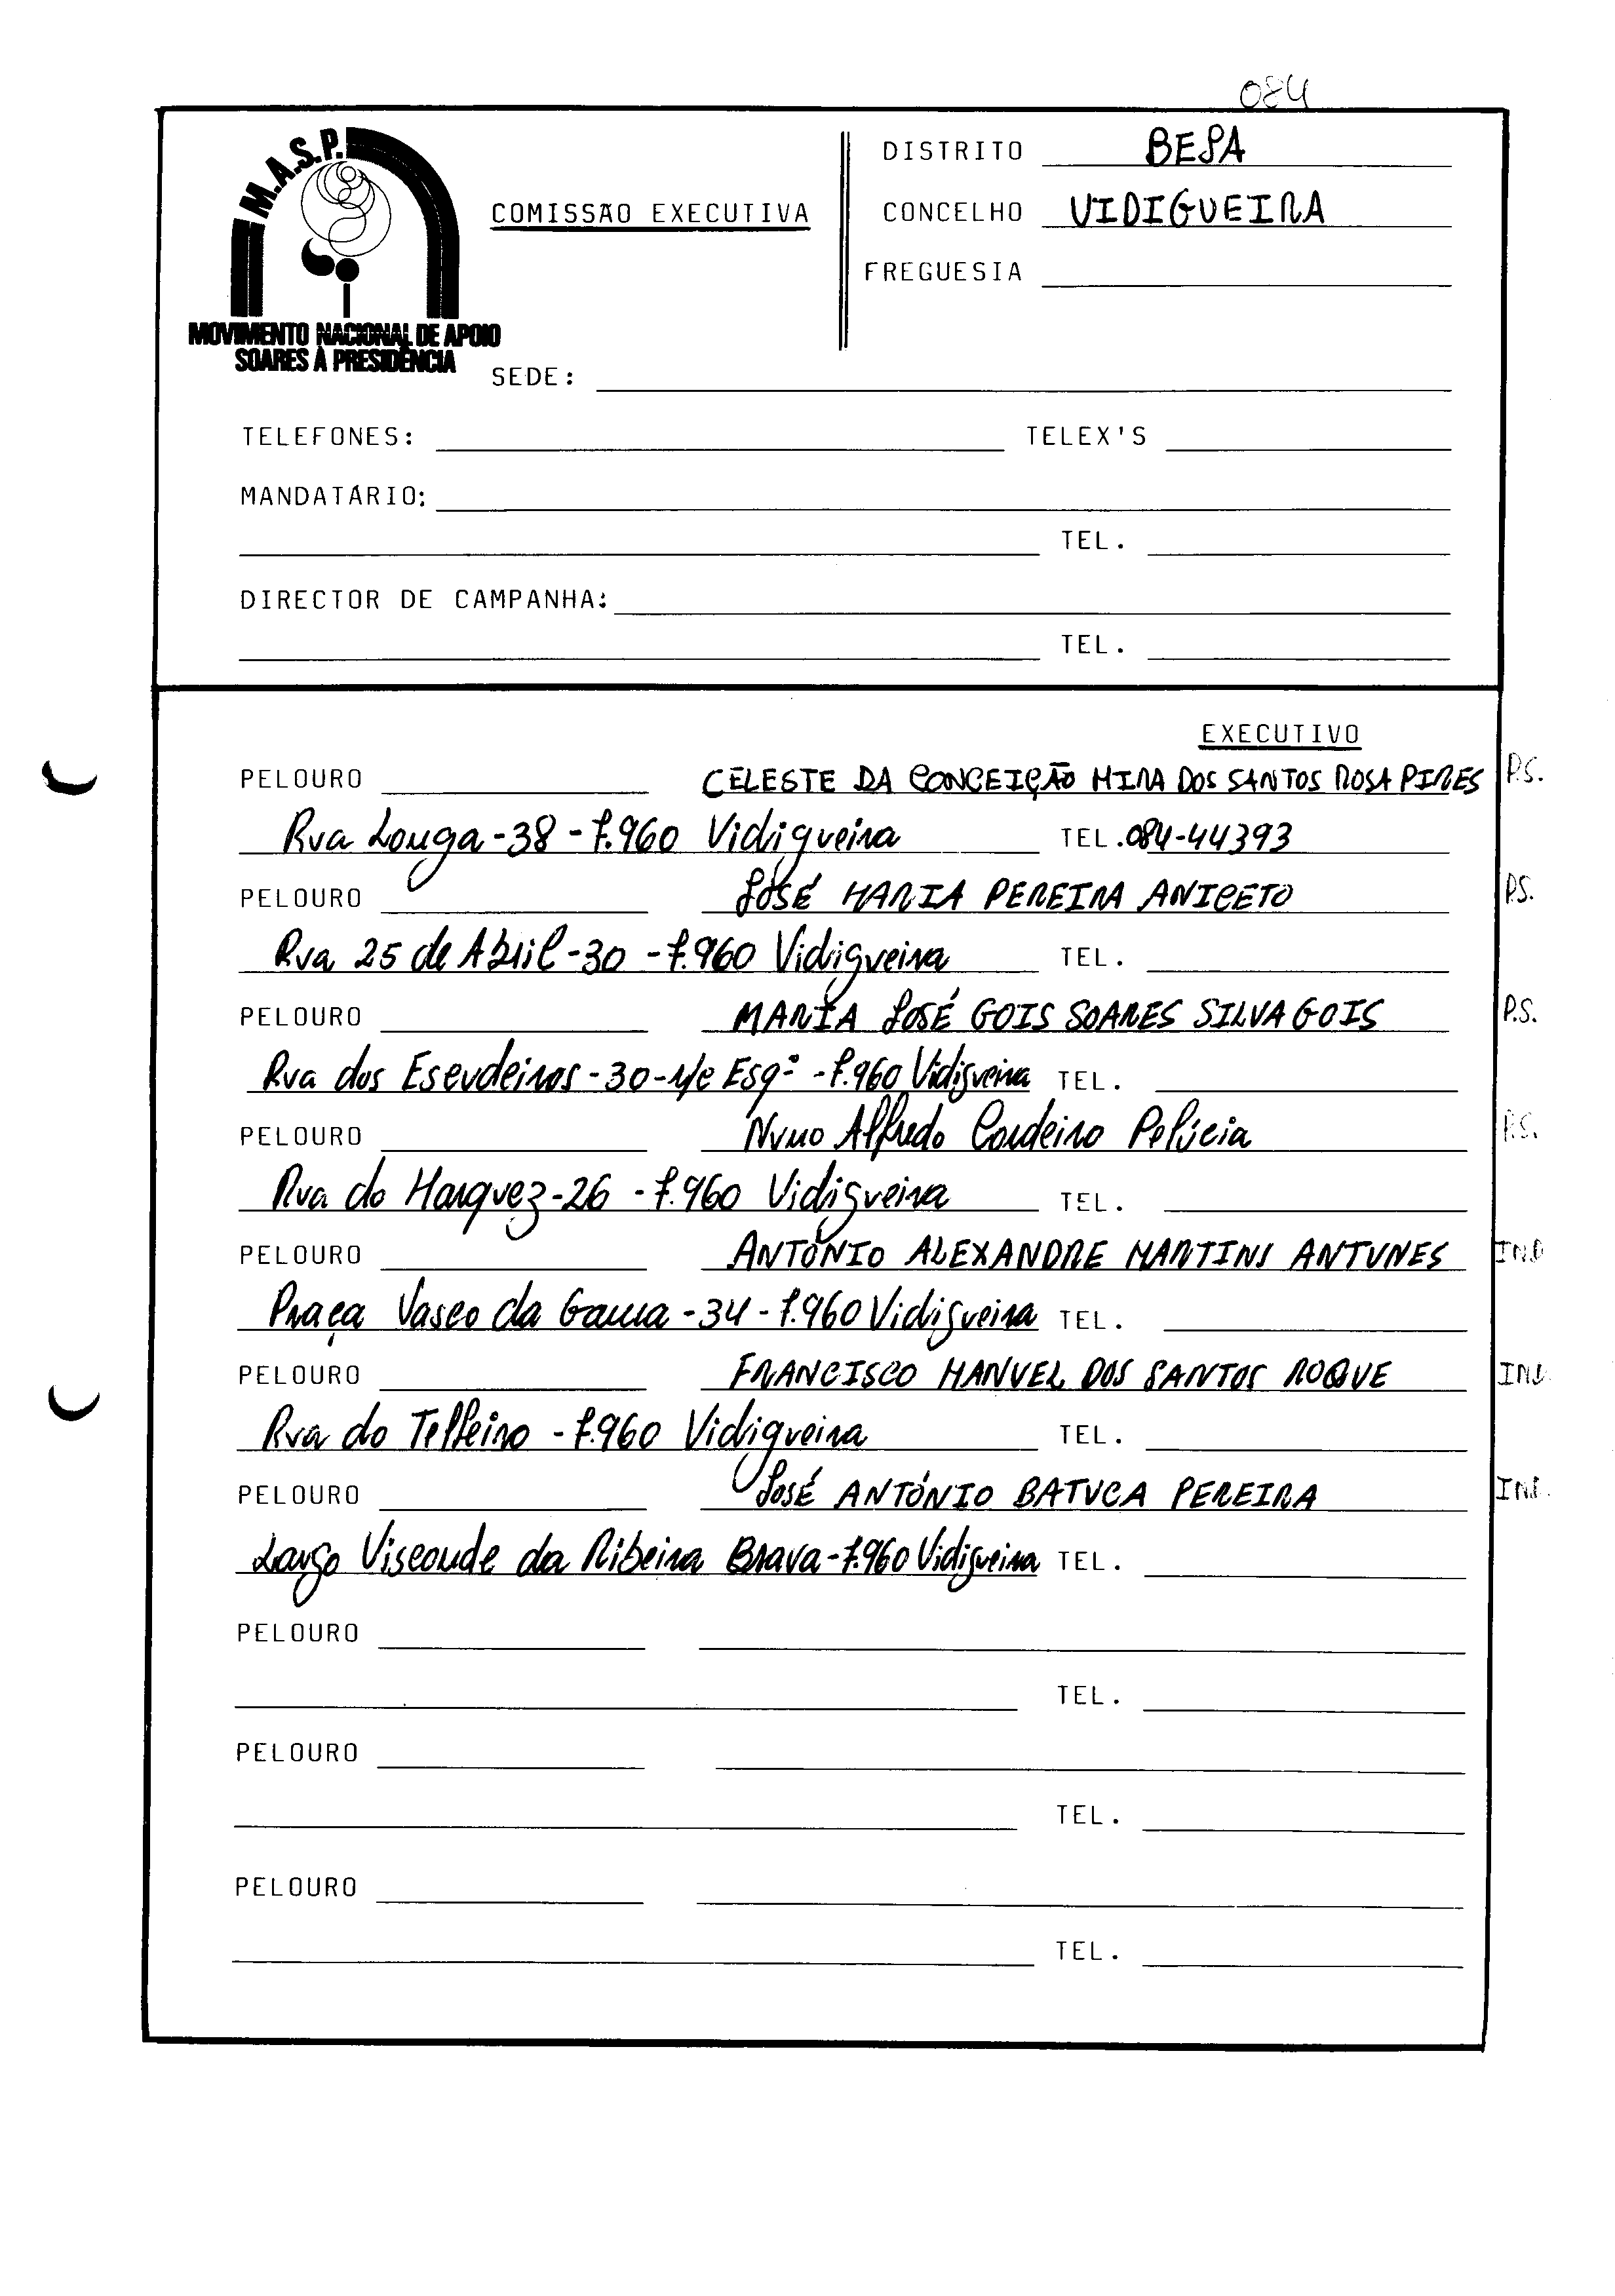 084
M.A.S.P.
MOVIMENTO NACIONAL DE APOIO
SOARES À PRESIDÊNCIA
COMISSÃO EXECUTIVA
DISTRITO BEJA
CONCELHO VIDIGUEIRA
FREGUESIA
SEDE:
TELEFONES: TELEX'S
MANDATÁRIO:
TEL.
DIRECTOR DE CAMPANHA:
TEL.
EXECUTIVO
PELOURO CELESTE DA CONCEIÇÃO MIRA DOS SANTOS ROSA PIRES P.S.
Rua Longa-38-7.960 Vidigueira TEL. 084-44393
PELOURO JOSÉ MARIA PEREIRA ANICETO P.S.
Rua 25 de Abril-30-7.960 Vidigueira TEL.
PELOURO MARIA JOSÉ GOIS SOARES SILVA GOIS P.S.
Rua dos Escudeiros-30-r/c Esqº-7.960 Vidigueira TEL.
PELOURO Nuno Alfredo Cordeiro Pelícia P.S.
Rua do Marquez-26-7.960 Vidigueira TEL.
PELOURO ANTÓNIO ALEXANDRE MARTINS ANTUNES IND
Praça Vasco da Gama-34-7.960 Vidigueira TEL.
PELOURO FRANCISCO MANUEL DOS SANTOS ROQUE IND.
Rua do -7.960 Vidigueira TEL.
PELOURO JOSÉ ANTÓNIO BATUCA PEREIRA IND.
Largo Visconde da Ribeira Brava-7.960 Vidigueira TEL.
PELOURO
TEL.
PELOURO
TEL.
PELOURO
TEL.